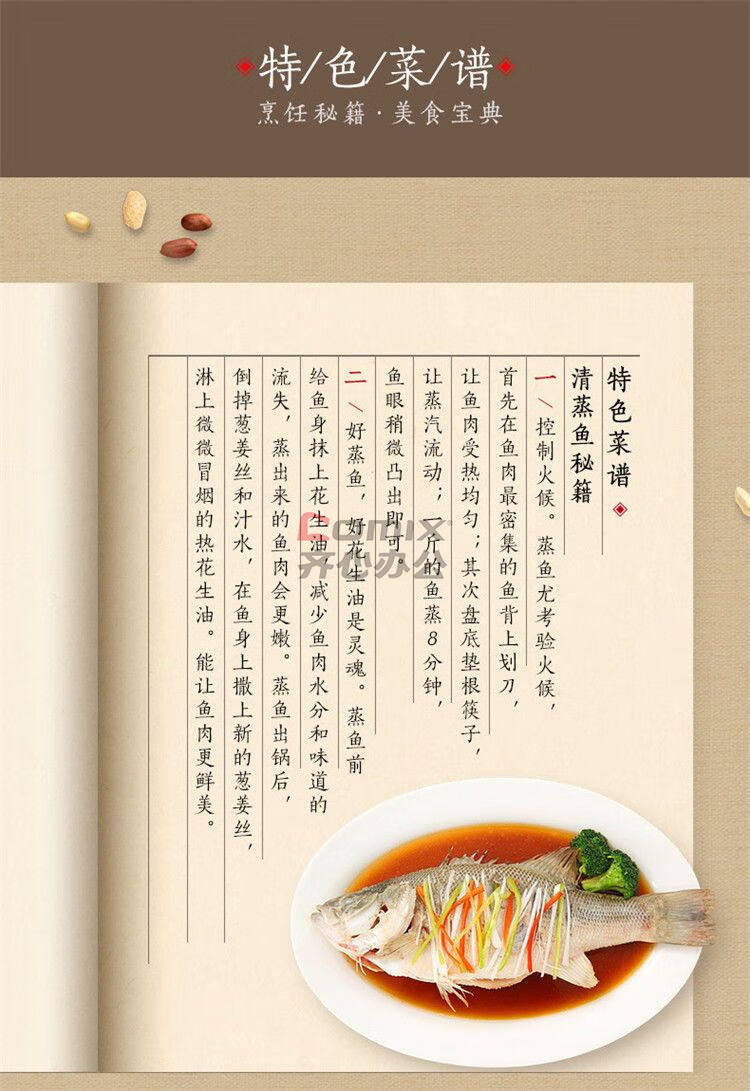 特/色/菜/谱
烹饪秘籍·美食宝典
特色菜谱
清蒸鱼秘籍
一/控制火候。蒸鱼尤考验火候，
首先在鱼肉最密集的鱼背上划刀，
让鱼肉受热均匀；其次盘底垫根筷子，
让蒸汽流动；一斤的鱼蒸8分钟，
鱼眼稍微凸出即可。
二/好蒸鱼，好花生油是灵魂。蒸鱼前
给鱼身抹上花生油，减少鱼肉水分和味道的
流失，蒸出来的鱼肉会更嫩。蒸鱼出锅后，
倒掉葱姜丝和汁水，在鱼身上撒上新的葱姜丝，
淋上微微冒烟的热花生油。能让鱼肉更鲜美。
Comix
齐心办公